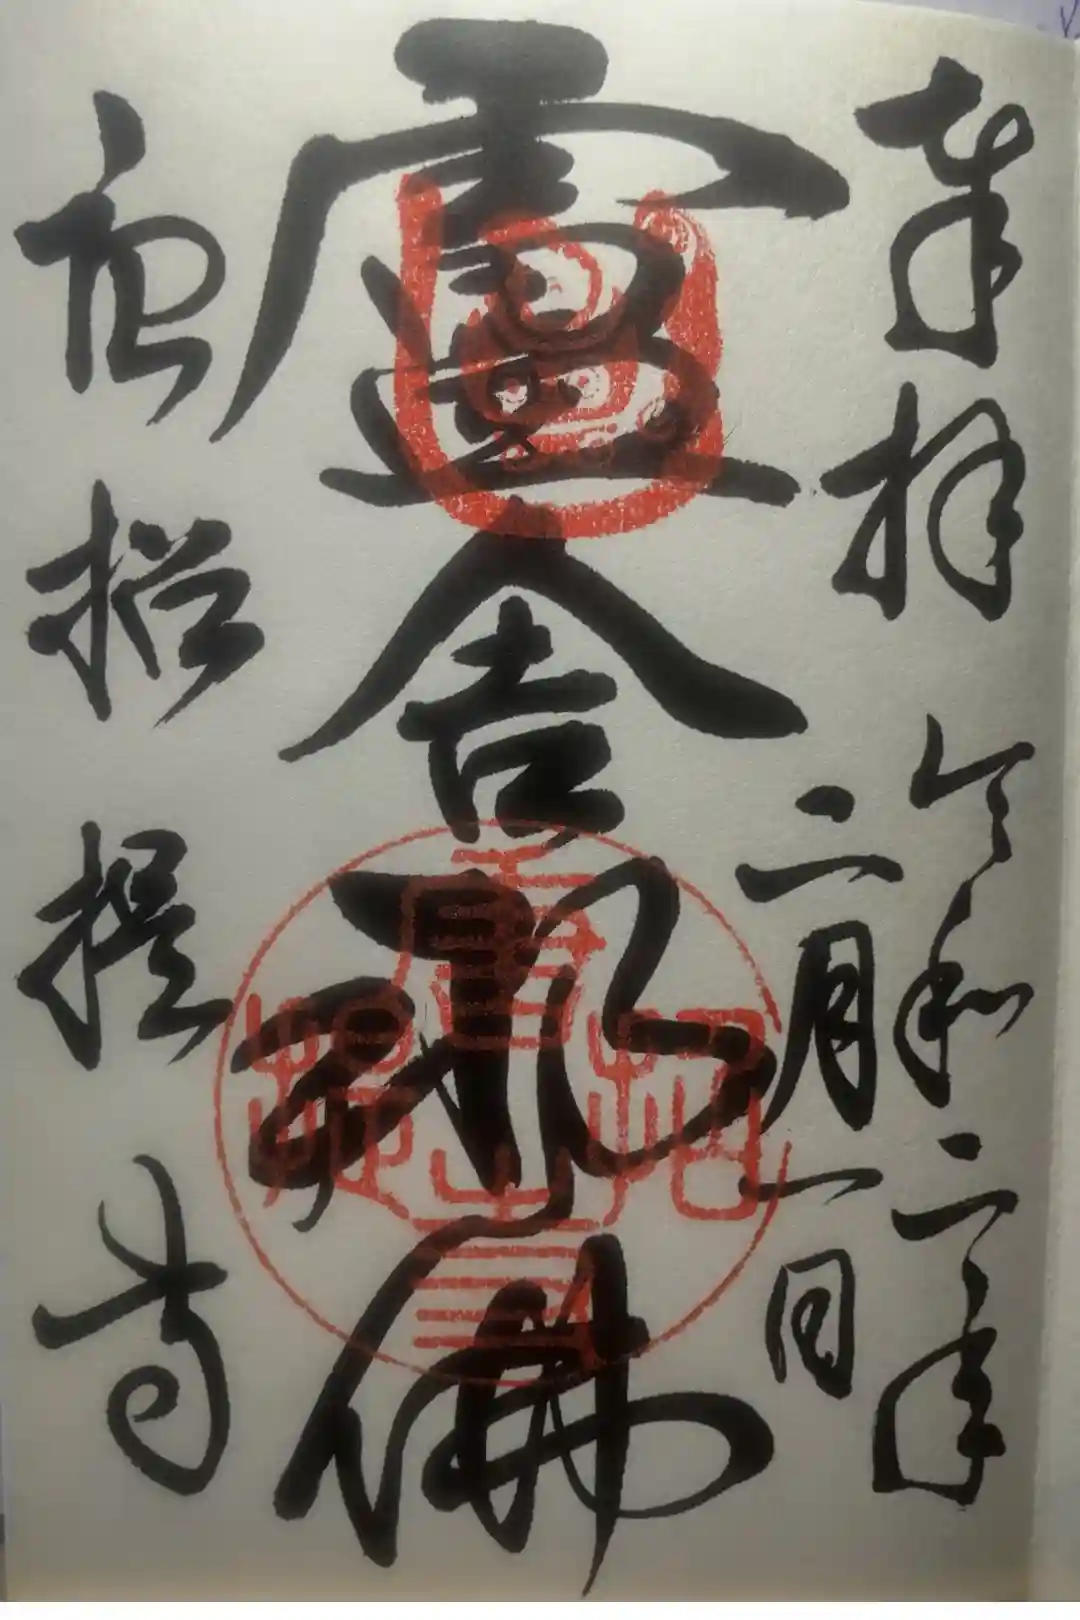 奉拝 令和二年
二月一日
盧舎那佛
唐招提寺